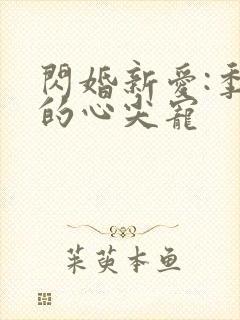 閃婚新愛:季
的心尖寵
茱萸本鱼